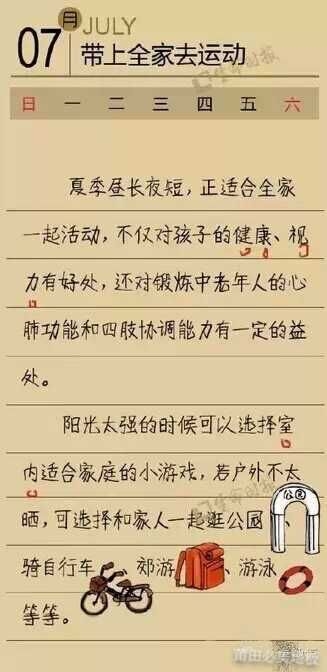 07
月
JULY
带上全家去运动
生命时报
日 一 二 三 四 五 六
夏季昼长夜短，正适合全家
一起活动，不仅对孩子的健康、视
力有好处，还对锻炼中老年人的心
肺功能和四肢协调能力有一定的益
处。
阳光太强的时候可以选择室
内适合家庭的小游戏，若户外不太
晒，可选择和家人一起逛公园、
公园
生命时报
骑自行车、郊游、游泳
等等。